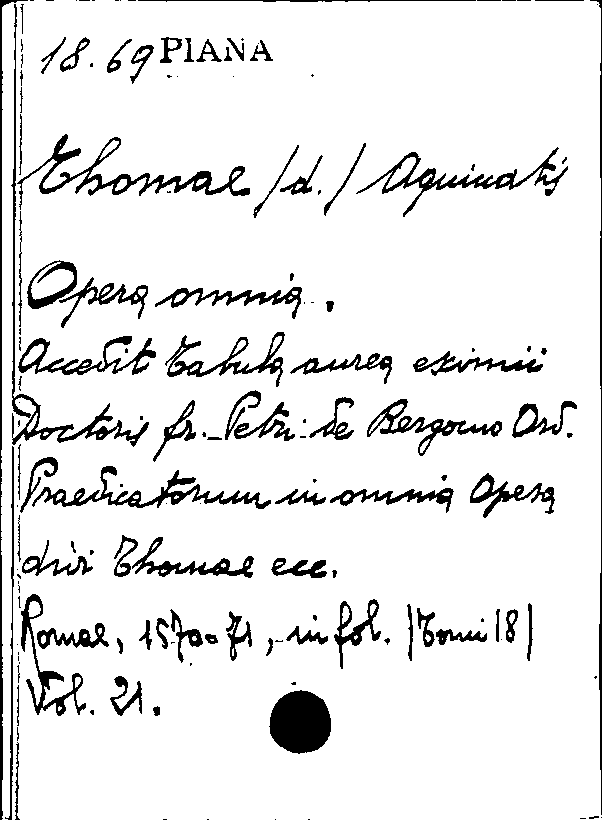 18.69 PIANA
Thomae /d./ Aquinatis
Opera omnia.
Accedit Tabula aurea eximii
Doctoris fr. Petri de Bergomo Ord.
Praedicatorum in omnia Opera
divi Thomae ecc.
Romae, 1570-71, in fol. |Tomi 18|
Vol. 21.